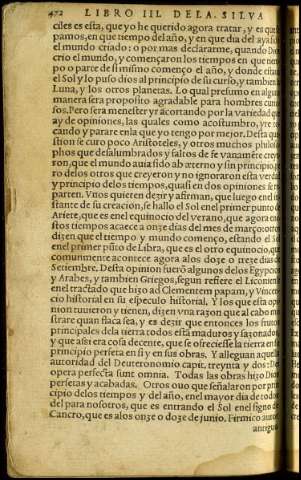 472 LIBRO III. DE LA SILVA
ciles es esta, que yo he querido agora tractar, y es que
pamos, en que tiempo del año, y en que dia del ayudo
el mundo criado: o por mas declararme, quando Dios
crio el mundo, y começaron los tiempos en que tiem
po o parte de si mismo começo el año, y donde estaua
el Sol y lo puso dios al principio de su curso, y tambien la
Luna, y los otros planetas. Lo qual presumo en alguna
manera sera proposito agradable para hombres curio
sos. Pero sera menester yr acortando por la variedad que
ay de opiniones, las quales como acostumbro, yre to
cando y parare en la que yo tengo por mejor. Desta que
stion se curo poco Aristoteles, y otros muchos philoso
phos que desalumbrados y faltos de fe vanamente creye
ron, que el mundo auia sido ab eterno y sin principio,
ro delos otros que creyeron y no ignoraron esta verdad
y principio delos tiempos, quasi en dos opiniones se re
parten. Vnos quieren dezir y affirman, que luego en el in
stante de su creacion, se hallo el Sol enel primer punto de
Ariete, que es enel equinocio del verano, que agora en e
stos tiempos acaece a onze dias del mes de março: otros
dizen que el tiempo y mundo començo, estando el Sol
enel primer punto de Libra, que es el otro equinocio, que
comunmente acontece agora alos doze o treze dias de
Setiembre. Desta opinion fuerõ algunos delos Egypcios
y Arabes, y tambien Griegos, segun refiere el Liconiense
en el tractado que hizo ad Clementem papam, y Vincen
cio historial en su especulo historial. Y los que esta opi
nion tuuieron y tienen, dizen vna razon que al cabo mo
strare quan flaca sea, y es dezir que entonces los frutos
principales dela tierra todos esta maduros y sazonados,
y que assi era cosa decente, que se ofreciesse la tierra en su
principio perfeta en si y en sus obras. Y alleguan aquella
autoridad del Deuteronomio capit. treynta y dos: Dei
opera perfecta sunt omnia. Todas las obras hizo Dios
perfetas y acabadas. Otros ouo que señalaron por prin
cipio delos tiempos y del año, enel mayor dia de todos
del para nosotros, que es entrando el Sol enel signo de
Cancro, que es alos onze o doze de junio. Firmico autor
antiguo